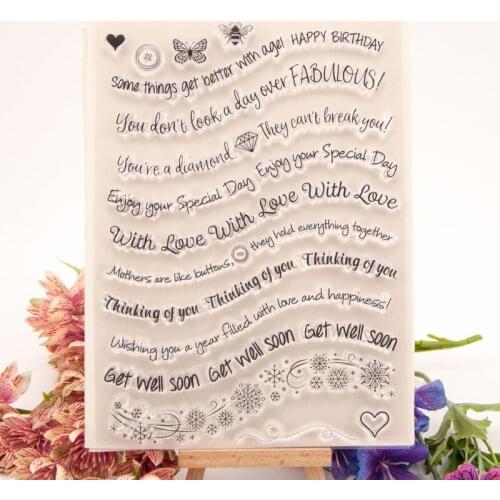 some things get better with age! HAPPY BIRTHDAY
You don't look a day over FABULOUS!
You're a diamond. They can't break you!
Enjoy your Special Day Enjoy your Special Day
With Love With Love With Love
Mothers are like buttons, they hold everything together
Thinking of you Thinking of you Thinking of you
Wishing you a year filled with love and happiness!
Get Well soon Get Well soon Get Well soon